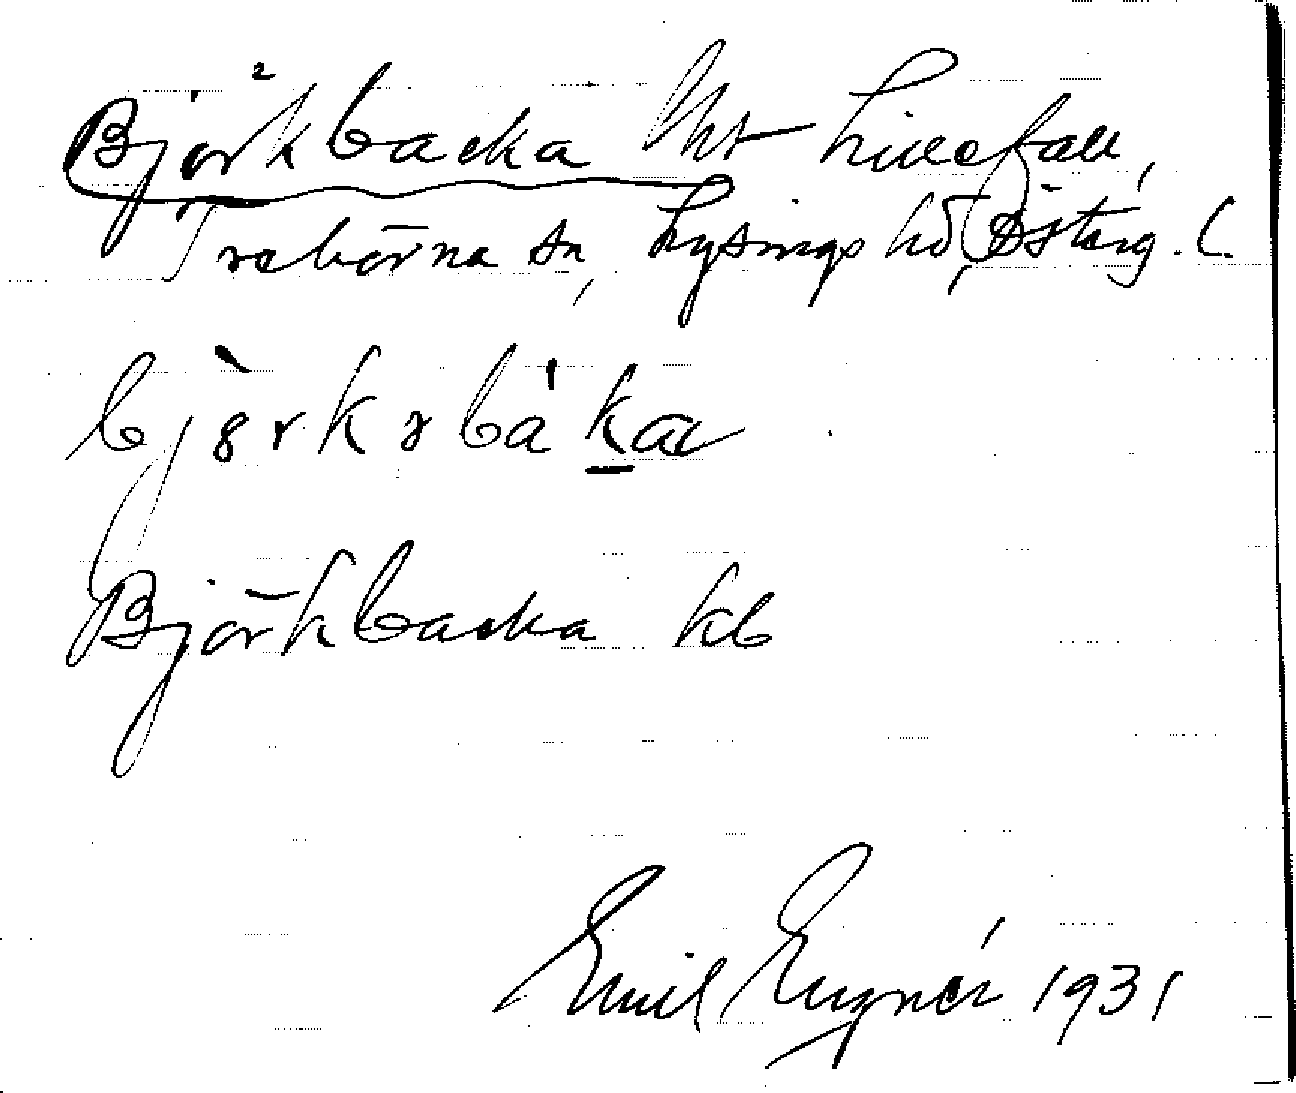 Björkbacka lht Lillefall,
Trehörna sn, Lysings hd, Östergötl.
björkəbàka
Björkbacka kb
Emil Eugnér 1931